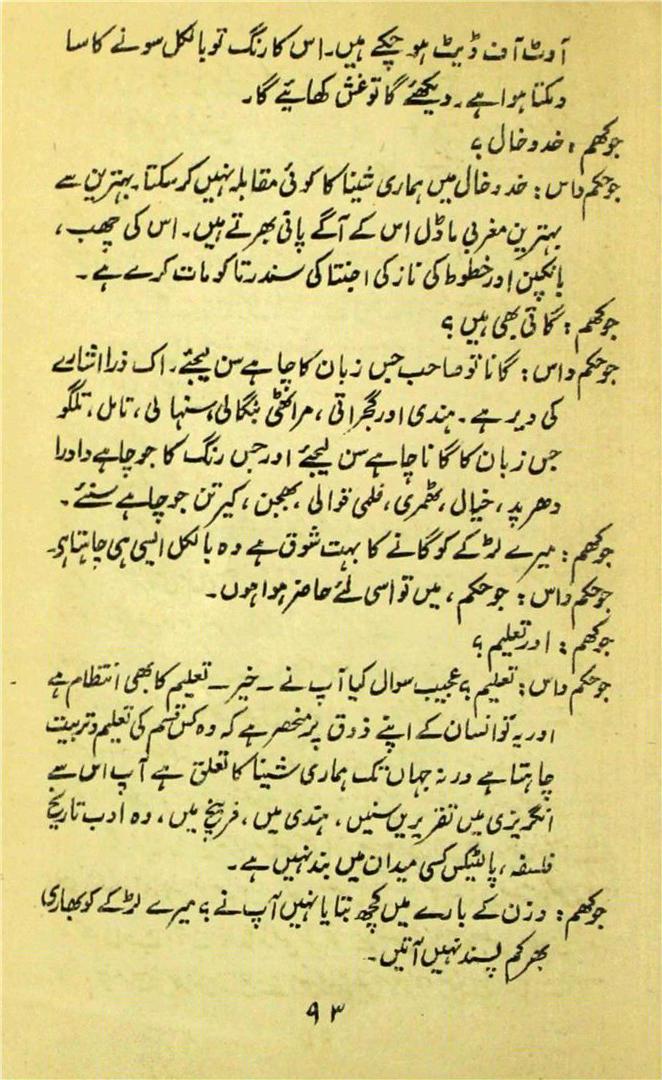 آوٹ آف ڈیٹ ہو چکے ہیں۔ اس کا رنگ تو بالکل سونے کا سا
دمکتا ہوا ہے۔ دیکھئے گا تو غش کھائیے گا۔
جوکھم : خدوخال ؟
جوحکم داس : خدوخال میں ہماری شینا کا کوئی مقابلہ نہیں کر سکتا۔ بہترین سے
بہترین مغربی ماڈل اس کے آگے پانی بھرتے ہیں۔ اس کی چھب ،
بانکپن اور خطوط کی نازکی اجنتا کی سندرتا کو مات کرے ہے۔
جوکھم : گاتی بھی ہیں ؟
جوحکم داس : گانا تو صاحب جس زبان کا چاہے سن لیجئے۔ اک ذرا اشارے
کی دیر ہے۔ ہندی اور گجراتی ، مراٹھی بنگالی، سنہالی ، تامل ، تلگو
جس زبان کا گانا چاہے سن لیجئے اور جس رنگ کا جو چاہے دادرا
دھرپد ، خیال ، ٹھمری ، فلمی قوالی ، بھجن ، کیرتن جو چاہے سنئے۔
جوکھم : میرے لڑکے کو گانے کا بہت شوق ہے وہ بالکل ایسی ہی چاہتا ہو۔
جوحکم داس : جو حکم ، میں تو اسی لئے حاضر ہوا ہوں۔
جوکھم : اور تعلیم ؟
جوحکم داس : تعلیم ؟ عجیب سوال کیا آپ نے ۔ خیر ۔ تعلیم کا بھی انتظام ہے
اور یہ تو انسان کے اپنے ذوق پر منحصر ہے کہ وہ کس قسم کی تعلیم و تربیت
چاہتا ہے ورنہ جہاں تک ہماری شینا کا تعلق ہے آپ اس سے
انگریزی میں تقریریں سنیں ، ہندی میں ، فرینچ میں ، وہ ادب تاریخ
فلسفہ ، پالٹیکس کسی میدان میں بند نہیں ہے۔
جوکھم : وزن کے بارے میں کچھ بتایا نہیں آپ نے ؟ میرے لڑکے کو بھاری
بھرکم پسند نہیں آتیں۔
۹۳